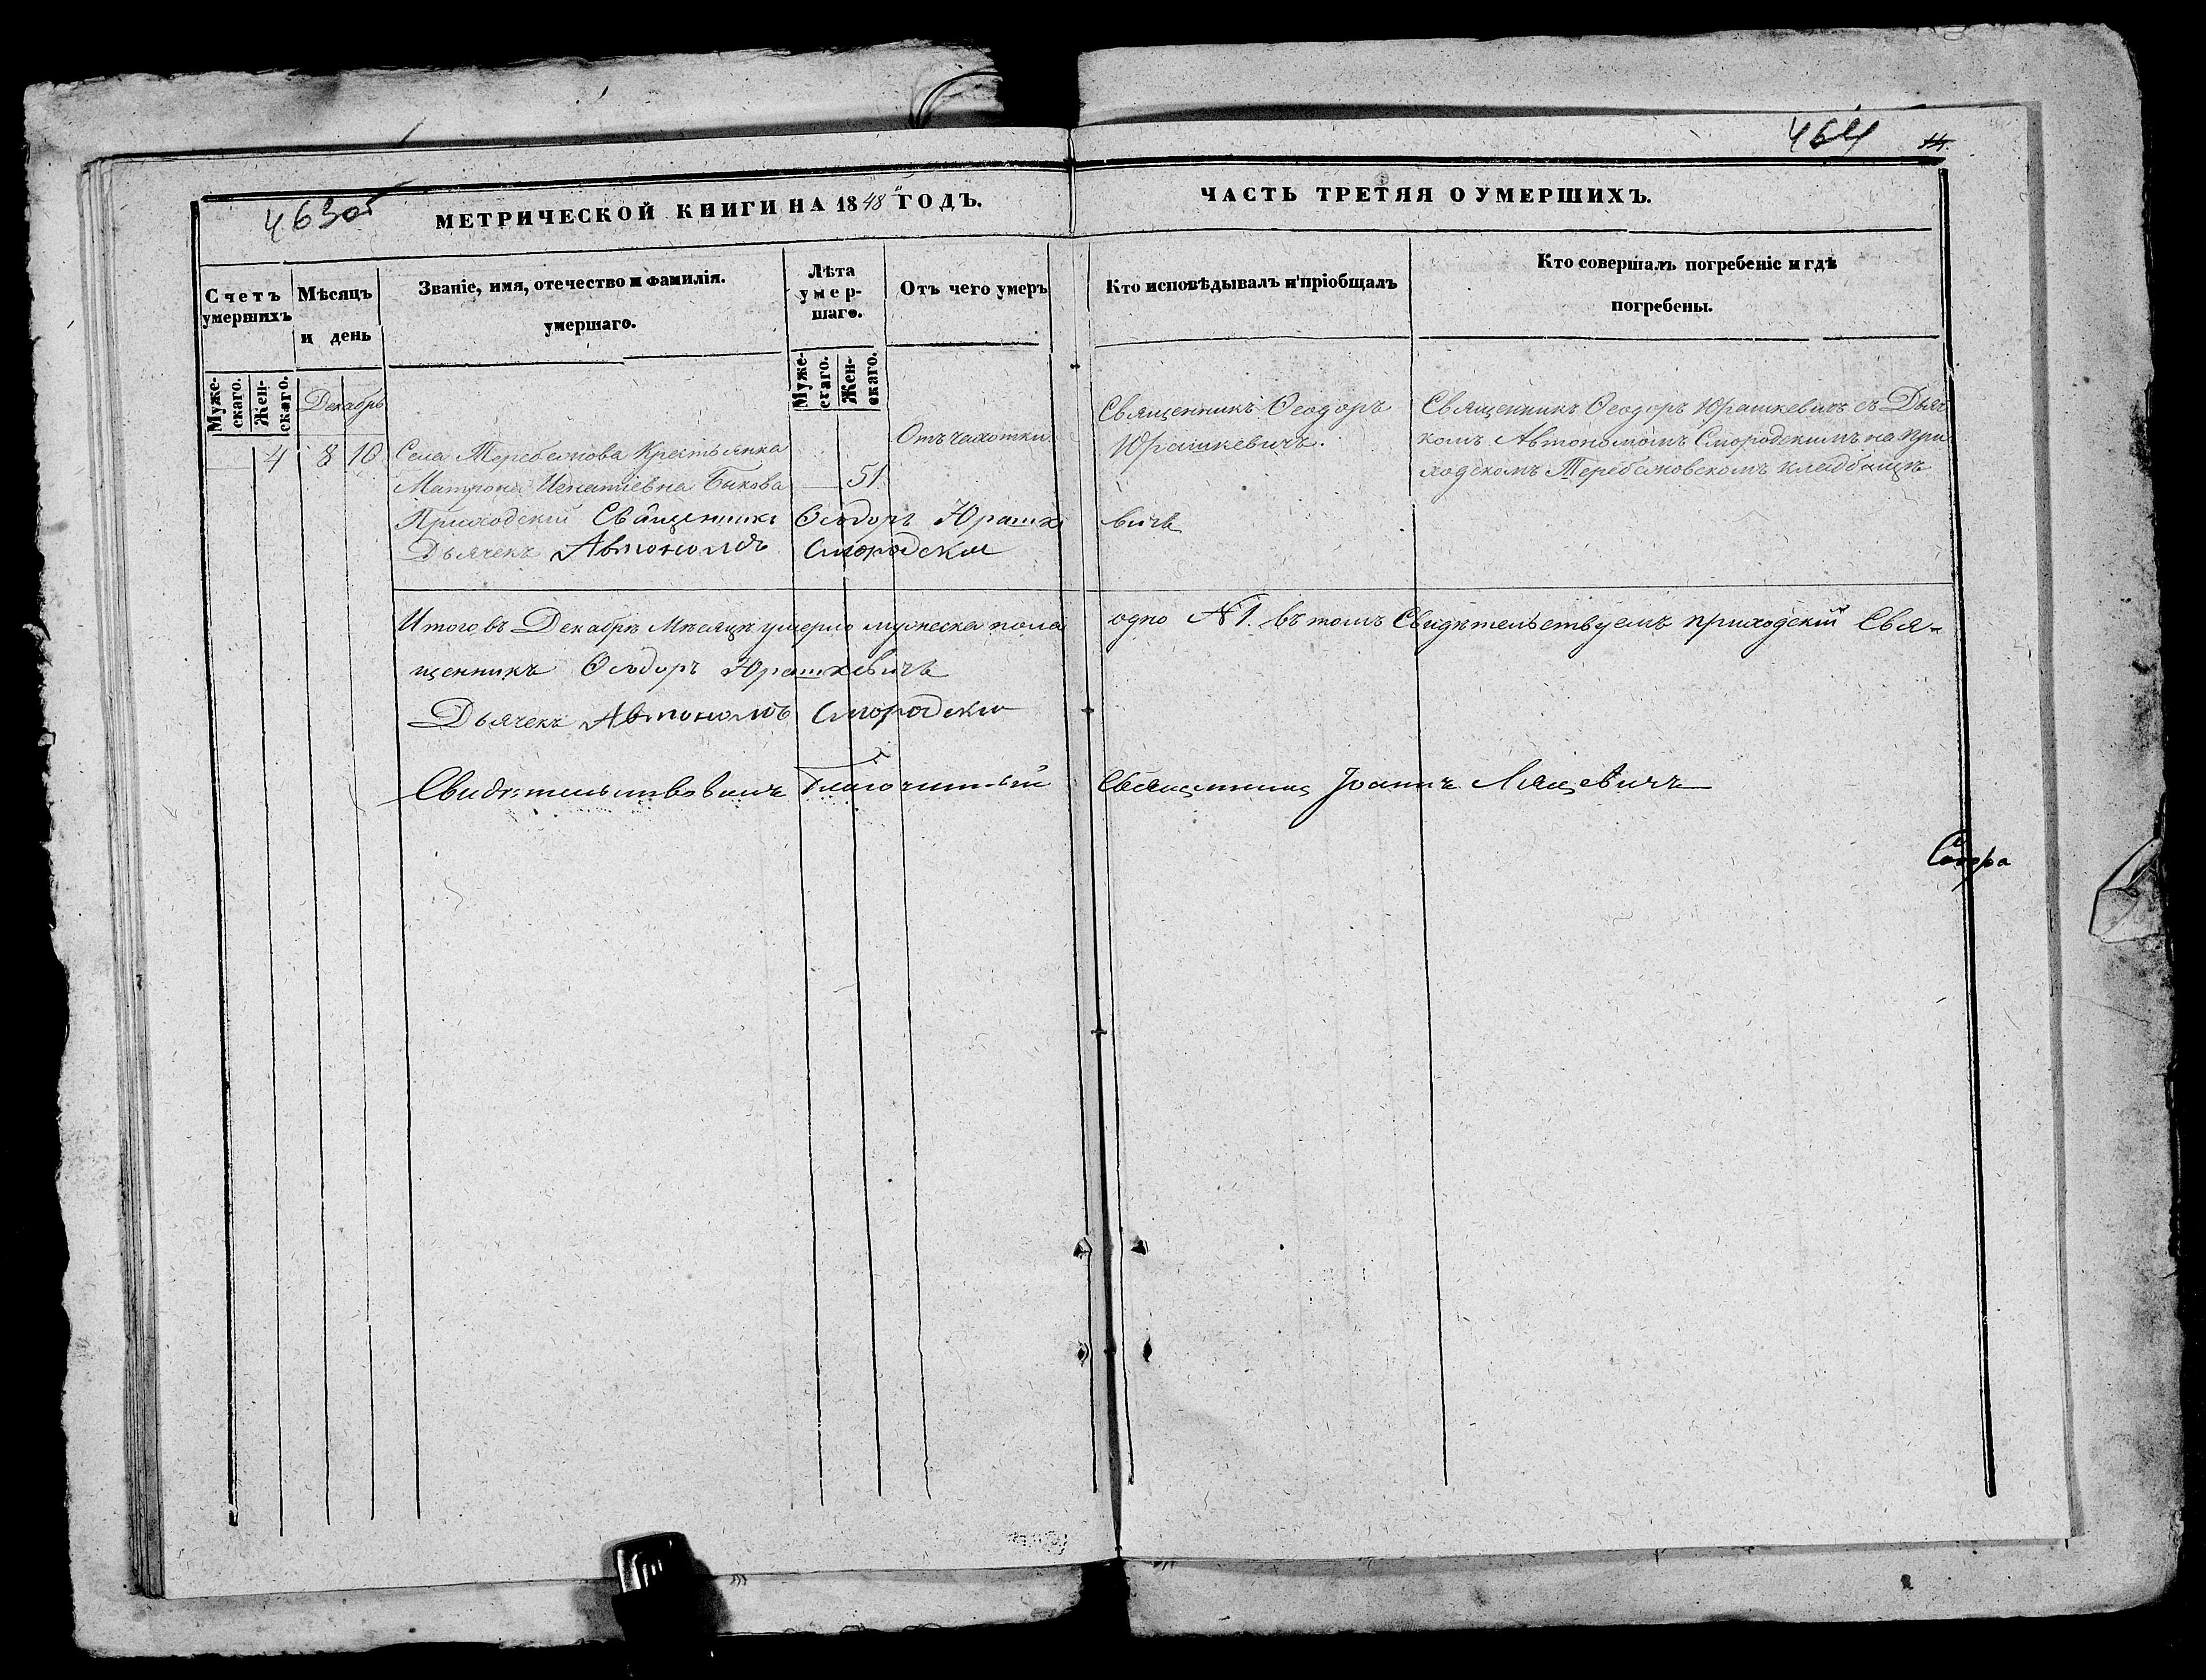 463об
464
14.
МЕТРИЧЕСКОЙ КНИГИ НА 1848 ГОДЪ.
ЧАСТЬ ТРЕТЯЯ О УМЕРШИХЪ.
Счетъ умершихъ
Мѣсяцъ и день
Званіе, имя, отечество и фамилія.
умершаго.
Лѣта умер-
шаго.
Отъ чего умеръ
Кто исповѣдывалъ и пріобщалъ
Кто совершалъ погребеніе и гдѣ
погребены.
Муже-
скаго.
Жен-
скаго.
Муже-
скаго.
Жен-
скаго.
Декабрь
4 8 10 Села Теребежова Крестьянка
Матрона Игнатіевна Быкова 51
Отъ чахотки
Священникъ Ѳеодоръ
Юрашкевичъ.
Священникъ Ѳеодоръ Юрашкевичъ съ Дьяч
комъ Автономомъ Смородскимъ на при
ходскомъ Теребежовскомъ кладбищѣ
Приходскій Священникъ Ѳеодоръ Юрашке
вичъ
Дьячекъ Автономъ Смородскій
Итого въ Декабрѣ Мѣсяцѣ умерло мужеска пола одно №1. въ томъ Свидѣтельствуемъ приходскій Свя-
щенникъ Ѳеодоръ Юрашкевичъ
Дьячекъ Автономъ Смородскій
Свидѣтельствовалъ Благочинный Священникъ Іоаннъ Лицевичъ